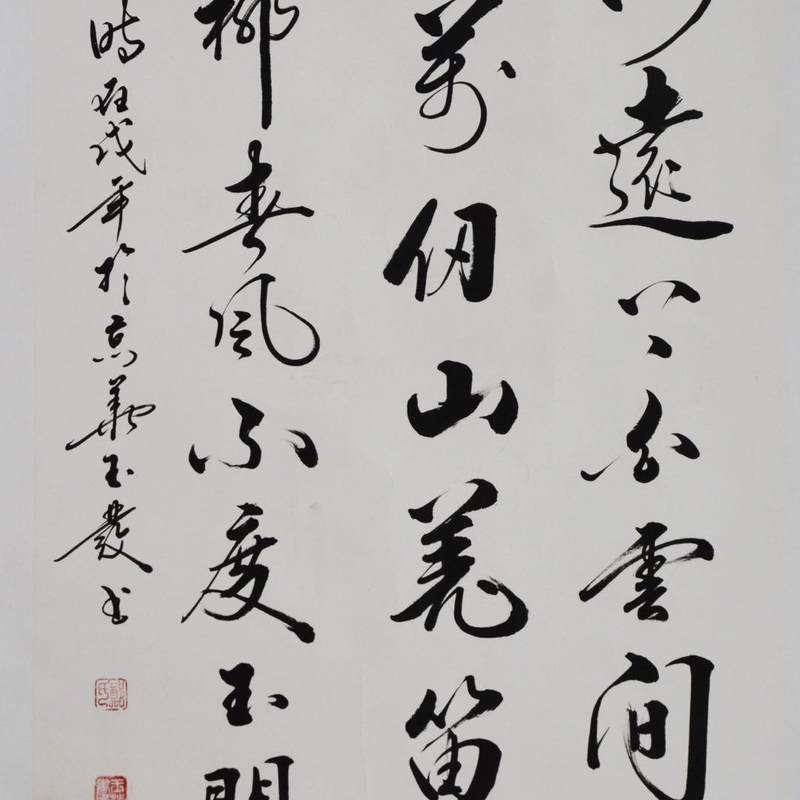 遠上白雲間
萬仞山羌笛
柳春風不度玉
時在戌年於京華玉發书